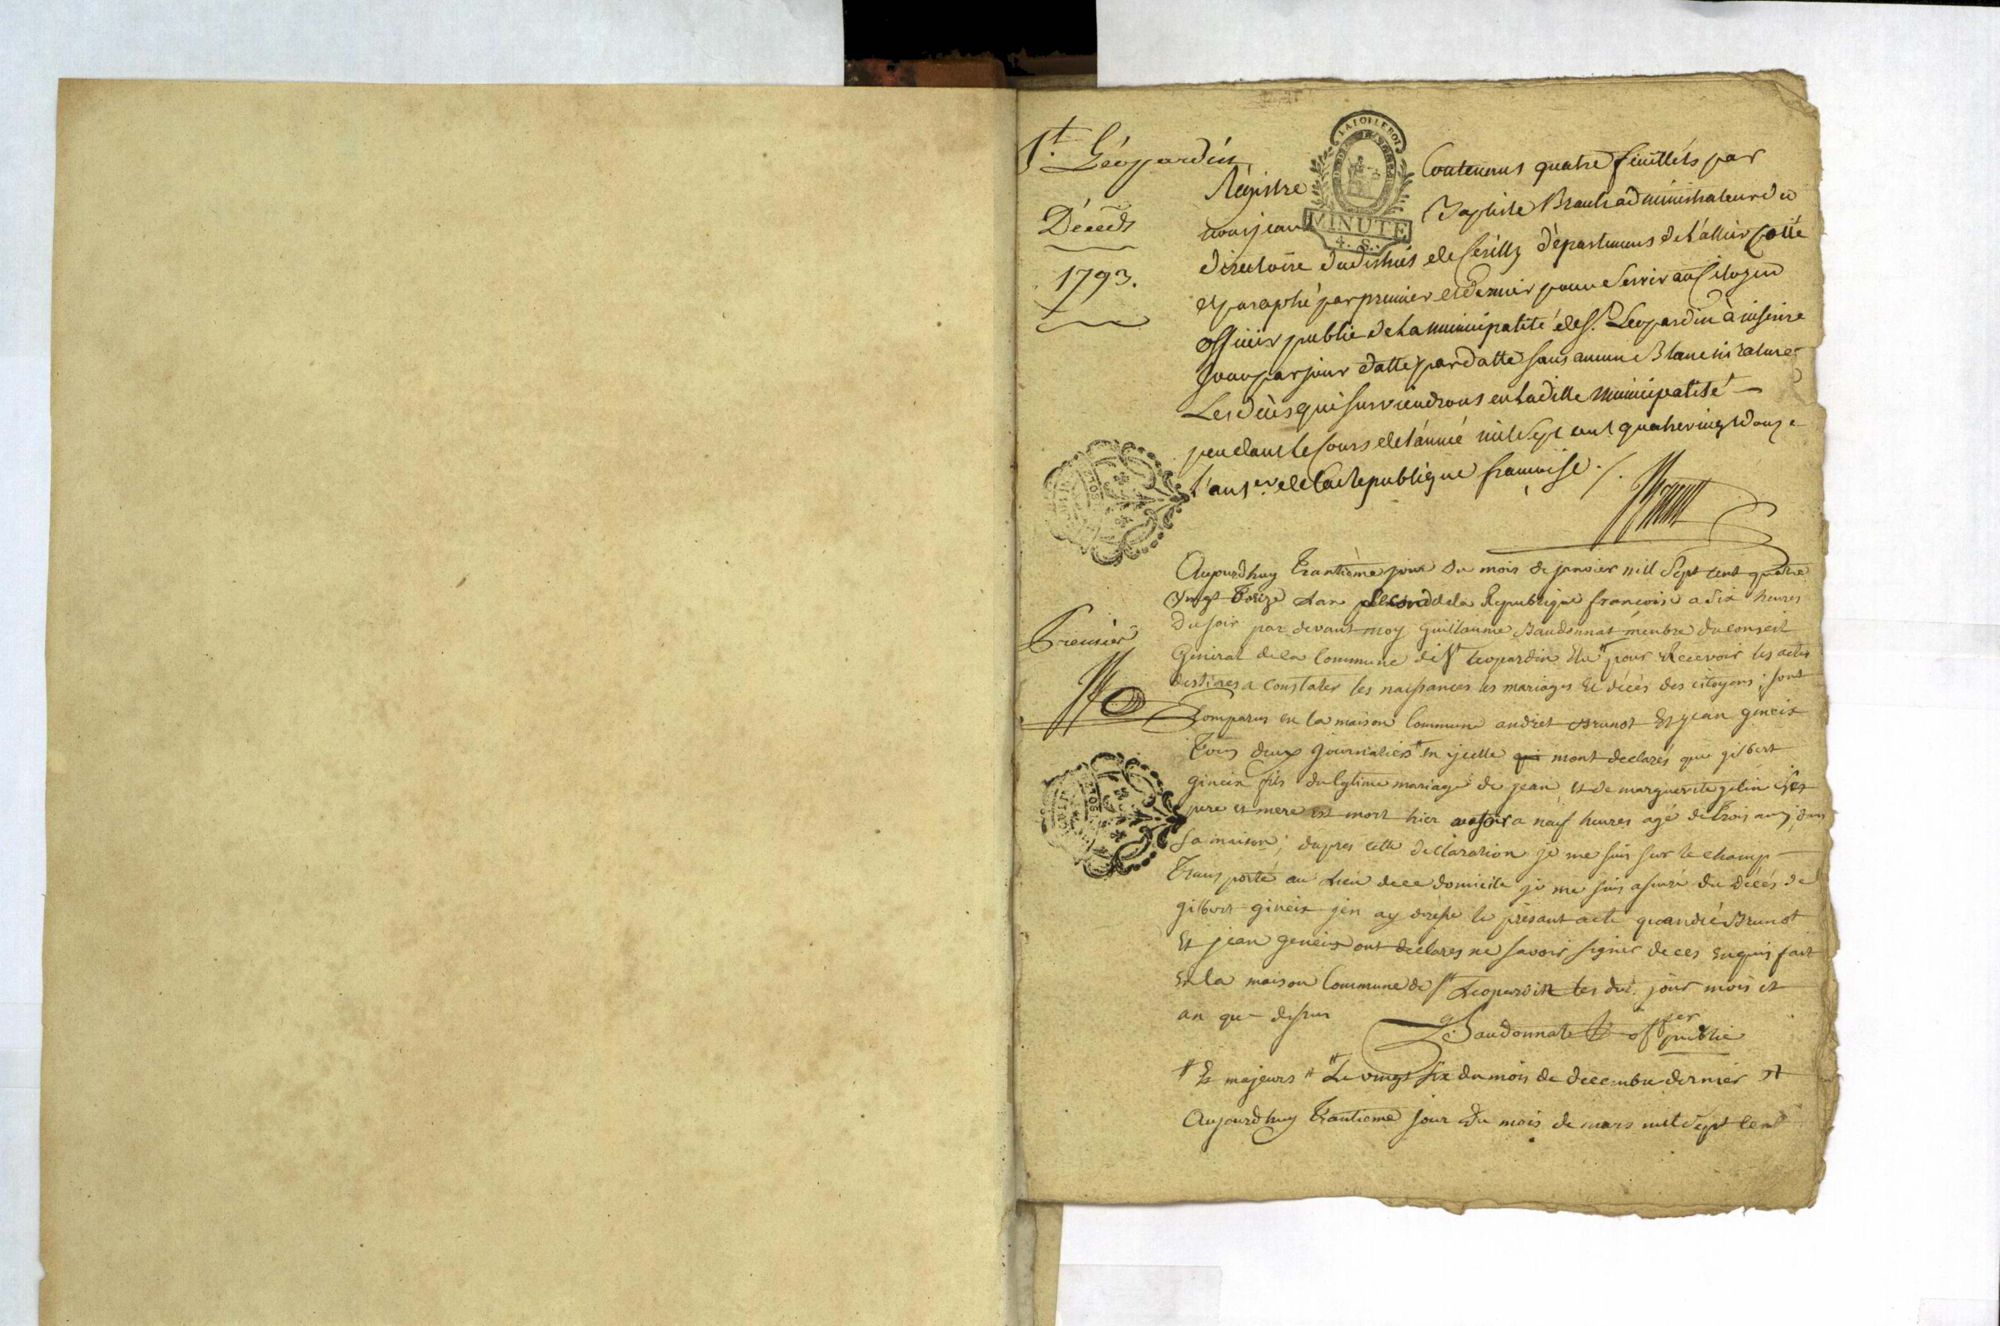 St. Léopardin
Décèds
1793.
LA LOI LE ROI
MINUTE
4. S.
Régistre Contenans quatre feuillets par
nous jean Baptiste Brault administrateur du
directoire du distric de Cerilly départemens de L'allier Cotté
et paraphé par premier et dernier pour Servir au Citoyen
officier public de La municipalité de St. Léopardin à inscrire
jour par jour datte par datte sans aucun Blanc ni ratures
Les décès qui surviendrons en Laditte municipalité
pendant le Cours de L'année mil Sept cent quatre vingt douze
l'an 1er. de la République francaise ./.
Aujourdhuy trantième jour du mois de janvier mil Sept cent quatre
vingt treize Lan second de la Republique francoise a six heures
Du soir par devant moy Guillaume Baudonnat menbre du conseil
General de la Commune de St leopardin Elu # pour Recevoir les actes
destines a constater les naissances les mariages Et décès des citoyens ; sont
Premier
Comparus en la maison Commune andret Brunot Et jean gineix
Tous deux journaliers # en icelle qui mont declarés que gilbert
gineix fils du legitime mariage de jean Et de marguerite gelin ses
pere et mere Est mort hier au soir a neuf heures agé de trois ans, dans
sa maison ; dapres cette declaration je me suis sur le champ
Transporté au Lieu de ce domicile je me suis assuré du décés de
gilbert gineix jen ay dressé le présant acte quandré Brunot
Et jean gineix ont declares ne savoir signer de ces Enquis fait
En la maison Commune de St Leopardin les dus. jour mois et
an que dessus
G. Baudonnat offer publie
# Et majeurs # # Le vingt six du mois de decembre dernier #
Aujourdhuy trantieme jour du mois de mars mil Sept Cent